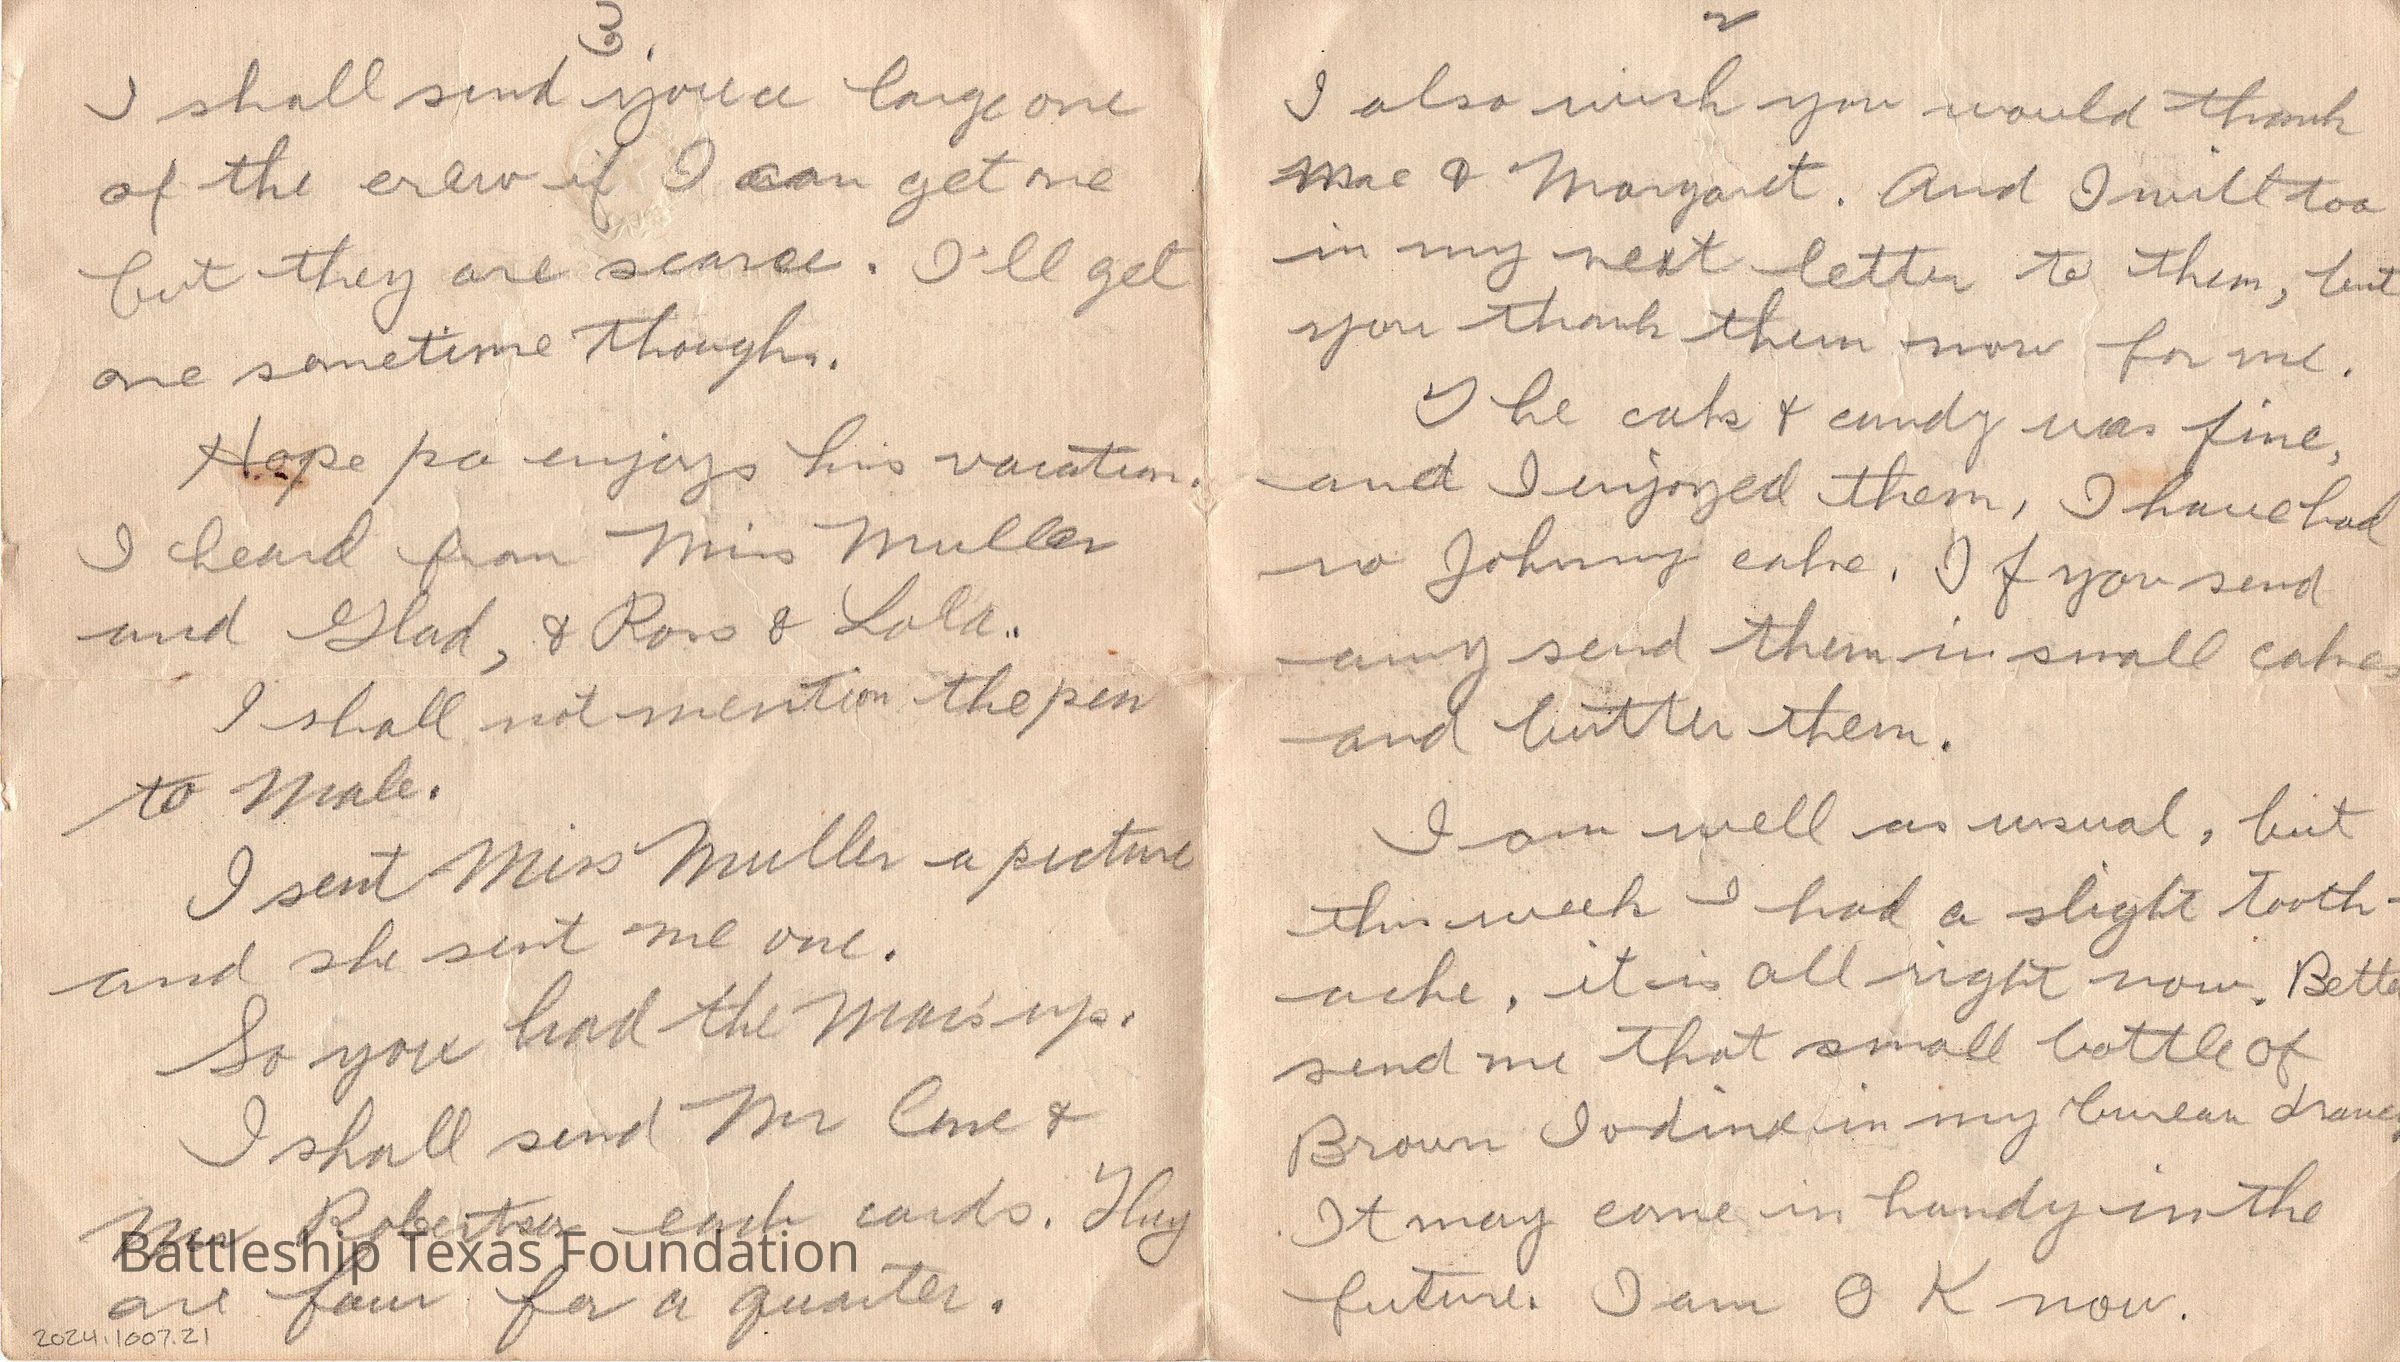 2
I also wish you would thank
Mae & Margaret. And I will too
in my next letter to them, but
you thank them now for me.
The cake & candy was fine,
and I enjoyed them, I have had
no Johnny cake. If you send
any send them in small cakes
and butter them.
I am well as usual, but
this week I had a slight tooth-
ache, it is all right now. Bette
send me that small bottle of
Brown Iodine in my bureau drawer
It may come in handy in the
future. I am O K now.
3.
I shall send you a large one
of the crew if I can get one
but they are scarce. I'll get
one sometime though.
Hope pa enjoys his vacation.
I heard from Miss Muller
and Glad, & Ross & Lola.
I shall not mention the pen
to
I sent Miss Muller a picture
and she sent me one.
So you had the Mac's up.
I shall send Mr &
Mr Robertson each cards. They
are four for a quarter.
Battleship Texas Foundation
2024.1007.21